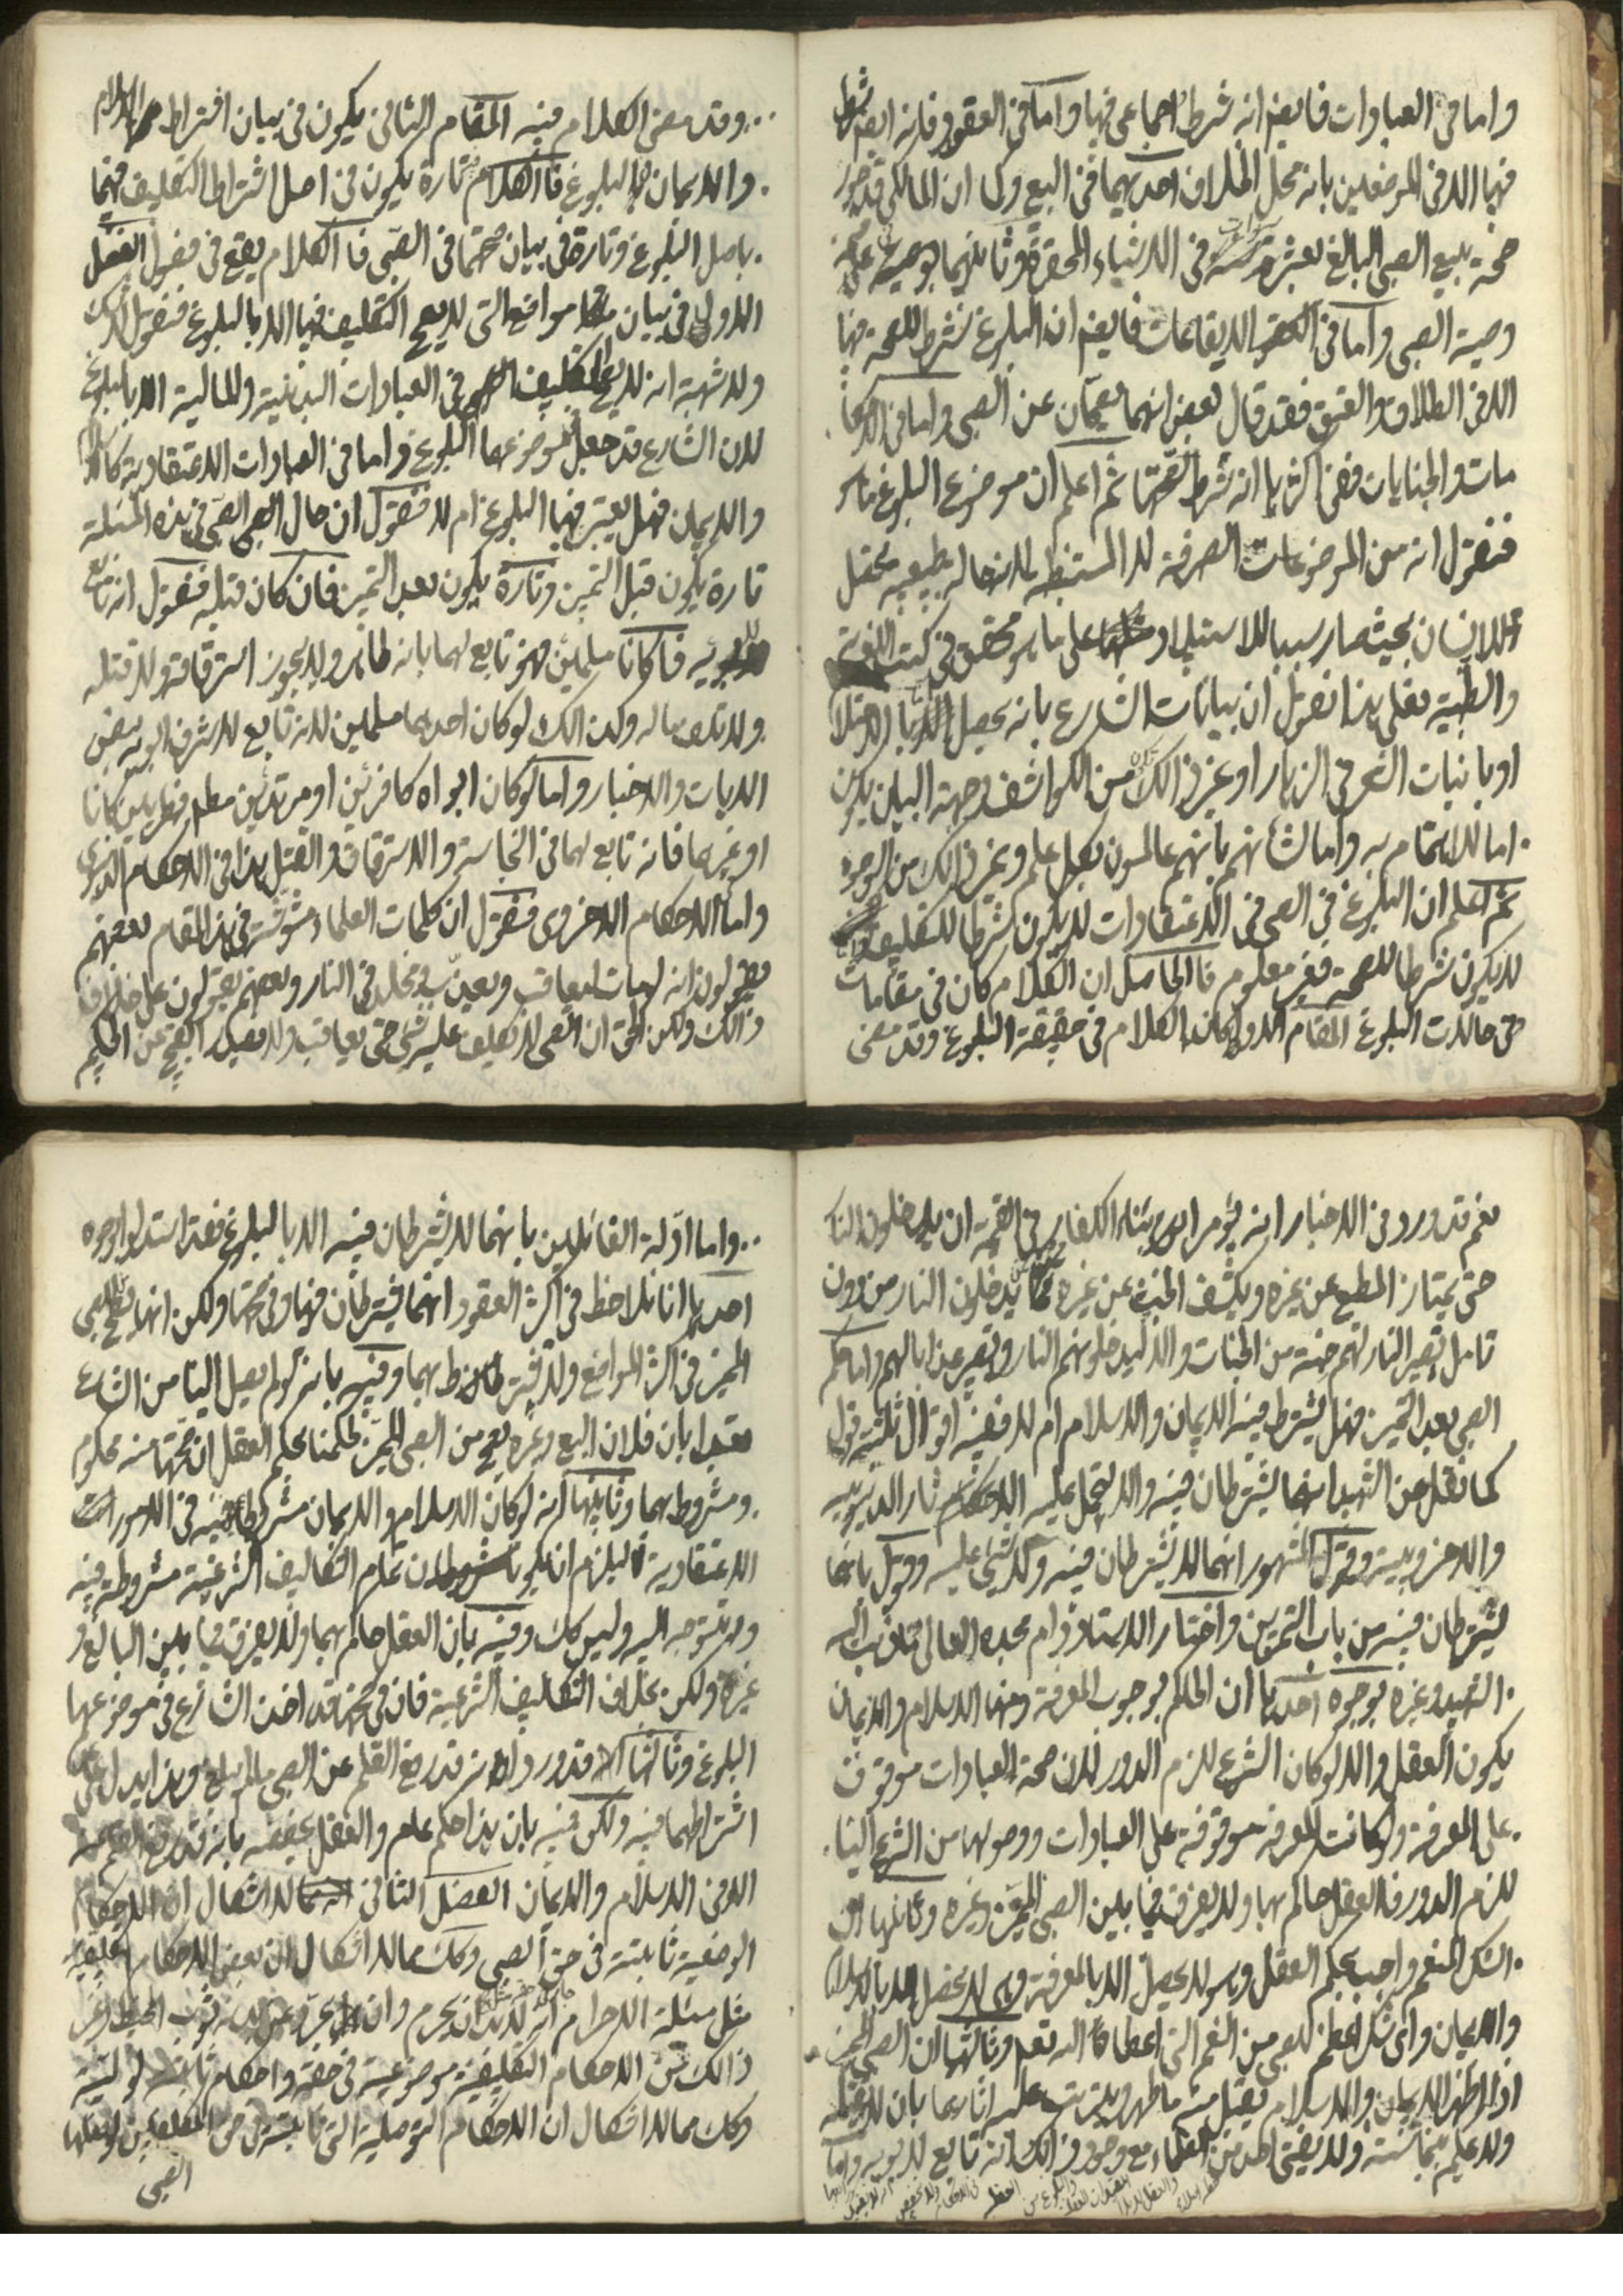 واما فى العبادات فايضا انه شرط اجماعى فيها واما فى العقود فانه ايضا شرط
فيها الا فى الموضعين بانه محل الخلاف احديهما فى البيع وكما ان المالكى قد جوز
صحة بيع الصبى البالغ بعشرة سنوات فى الاشياء المحقرة وثانيهما
وصية الصبى واما فى الايقاعات فايضا ان البلوغ شرط للصحة فيها
الا فى الطلاق والعتق فقد قال بعض انهما يصحان عن الصبى واما فى الاحكا
مات والجنايات ففى اكثرها انه شرط لصحتها ثم اعلم ان موضوع البلوغ ماذا
فنقول انه من الموضوعات الصرفة لا المستنبطه لانها حاله طبيعيه تحصل
للانسان بحيث صار سببا للاستيلاد على ما هو محقق فى كتب اللغوية
والطبية فعلى هذا نقول ان بيانات الشارع بانه يحصل بالاحتلام
او بانبات الشعر فى الزهار او غير ذالك من الكواشف وجهة البيان يكون
اما للاهتمام به واما لشانهم بانهم عالمون بكل علم وغير ذالك من الوجوه
ثم اعلم ان البلوغ فى الصبى فى الاعتقادات لا يكون شرطا للتكليف
لا يكون شرطا للصحة فغير معلوم فالحاصل ان الكلام كان فى مقامات
فى حالات البلوغ المقام الاول كان الكلام فى حقيقة البلوغ وقد مضى
وقد مضى الكلام فيه المقام الثانى يكون فى بيان اشتراط الاسلام
والايمان بالبلوغ فالكلام تارة يكون فى اصل اشتراط التكليف فيهما
باصل البلوغ وتارة فى بيان صحتها فى الصبى فالكلام يقع فى فصول الفصل
الاول فى بيان مواضع التى لا يصح التكليف فيها الا بالبلوغ فنقول
ولا شبهة انه لا يصح التكليف فى العبادات البدنية والمالية الا بالبلوغ
لان الشارع قد جعل موضوعها البلوغ واما فى العبادات الاعتقادية كالاسلام
والايمان فهل يعتبر فيها البلوغ ام لا فنقول ان حال الصبى فى هذه المسئلة
تارة يكون قبل التميز وتارة يكون بعد التميز فان كان قبله فنقول انه تابع
لابويه فاكانا مسلمين فهو تابع لهما بانه طاهر ولا يجوز استرقاقه ولا قتله
ولا تلف ماله وكذالك لو كان احدهما مسلمين لانه تابع لاشرف ابويه ببعض
الايات والاخبار واما لو كان ابواه كافرين او مرتدين مطلقا فطريين كانا
او غيرهما فانه تابع لهما فى النجاسة والاسترقاق والقتل هذا فى الاحكام الدنيوى
واما الاحكام الاخروى فنقول ان كلمات العلماء مشوشة فى هذا المقام بعضهم
يقولون انه لو مات ليعاقب ويعذب فى مخلد فى النار وبعضهم يقولون على خلاف
ذالك ولكن الحق ان الصبى لا تكليف عليه شىء حتى يعاقب ولا يصدر القبيح عن الحكيم
نعم قد ورد فى الاخبار انه يؤمر ابناء الكفار فى القيمة ان يدخلون النار
حتى يمتاز المطيع عن غيره ويكشف الخبث عن غيره يدخلون النار من دون
تامل تصير النار لهم جنة من الجنات والا ليدخلونهم النار وتصير عذابا لهم واما حكم
الصبى بعد التميز فهل يشترط فيه الايمان والاسلام ام لا ففيه اقوال ثلثة قول
كما نقل عن الشهيد انهما يشترطان فيه والا يتحمل عليه الاحكام اثار الدنيويه
والاخرويية وقول المشهور انهما لا يشترطان فيه ولا شىء عليه وقول بانهما
يشترطان فيه من باب التمرين واختار الاستاد دام مجده العالى مذهب
الشهيد وغيره بوجوه احديها ان الحكم بوجوب المعرفة ومنها الاسلام والايمان
يكون العقل والا لو كان الشرع للزم الدور لان صحة العبادات موقوف
على المعرفة ولو كانت المعرفة موقوفة على العبادات ووصولها من الشرع الينا
للزم الدور فالعقل حاكم بها ولا يفرق فيما بين الصبى المميز وغيره وثانيها ان
الشكر المنعم واجب بحكم العقل وهو لا يحصل الا بالمعرفة وهى لا يحصل الا بالاسلام
والايمان واى شكر اعظم للصبى من النعم التى اعطاه الله تعالى وثالثها ان الصبى المميز
اذا اظهر الايمان والاسلام يقبل منه ما ظهر ويترتب عليه اثارهما بان لا يقتله
ولا عليهم بنجاسته ولا يفتى احد من العلماء مع وجود ذالك انه تابع لابويه واما
واما ادلة القائلين بانهما لا يشترطان فيه الا بالبلوغ فقد استدلوا بوجوه
احديها انا نلاحظ فى اكثر العقود انهما يشترطان فيها وفى صحتها ولكن انها يصح للصبى
المميز فى اكثر المواضع ولا يشترط بهما وفيه بانه لو لم يصل الينا من الشارع
مقيدا بان فلان البيع وغيره يصح من الصبى المميز لحكمنا بحكم العقل ان صحتها منه محكوم
ومشروط بهما وثانيها انه لو كان الاسلام والايمان مشروطا فيه فى الامورات
الاعتقادية ليلزم ان يكون تمام التكاليف الشرعية مشروطة فيه
ولا يتوجه اليه وليس كك وفيه بان العقل حاكم بهما ولا يفرق فيما بين البالغ و
غيره ولكن بخلاف التكاليف الشرعية فان فى صحتها قد اخذ الشارع فى موضوعها
البلوغ وثالثها انه قد ورد انه قد رفع القلم عن الصبى ما لم يبلغ وهذا يدل على
اشتراطهما فيه ولكن فيه بان هذا حكم عام والعقل يخصصه بانه قد رفع القلم عنه
الا فى الاسلام والايمان الفصل الثانى لا اشكال ان الاحكام
الوضعية ثابتة فى حق الصبى وكك مما لا اشكال ان بعض الاحكام التكليفية
مثل مسئلة الاحرام انه لا بد ان يحرم وان يجرد عن بدنه ثوب المخيط وغير
ذالك من الاحكام التكليفية موضوعية فى حقه واحكام ثابتة لوليه
وكك مما لا اشكال ان الاحكام التوصلية التى ثابتة فى حق المكلفين لو فعلها
الصبى